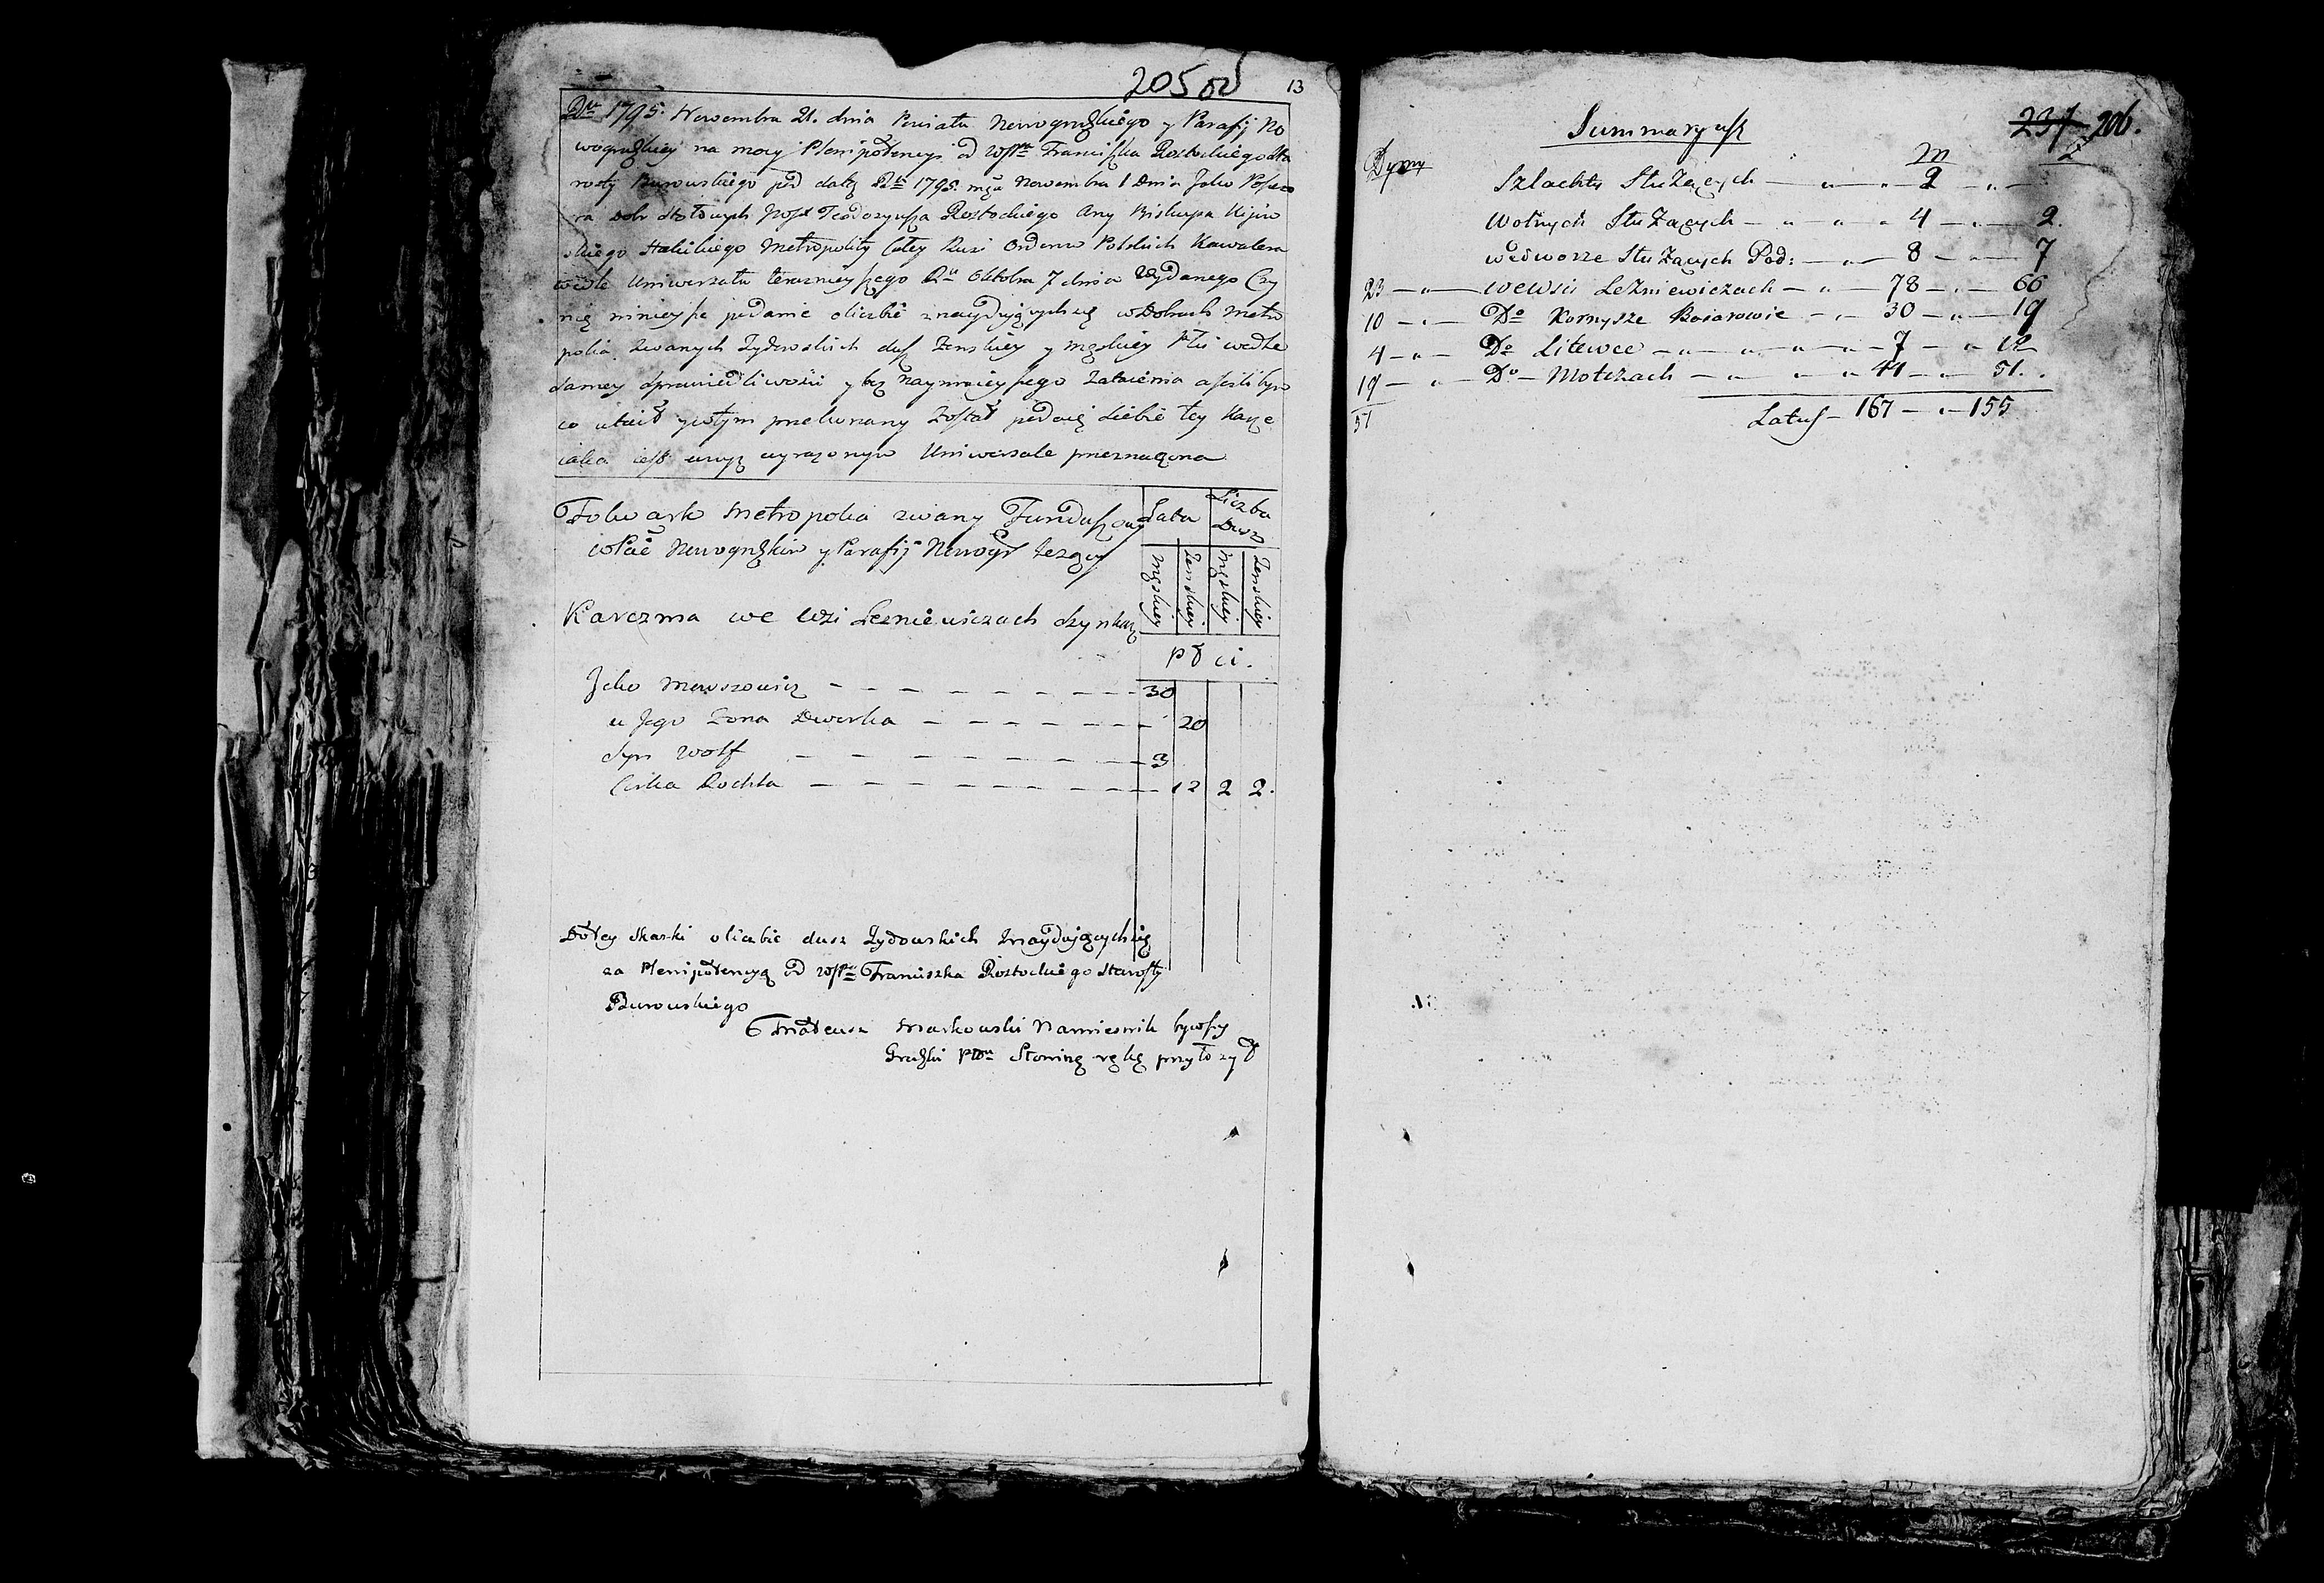 205 об 13
Rku 1795. Nowembra 21. dnia Powiatu Nowogrudzkiego y Parafij No
wogrudzkiey na mocy Plenipotencyi od Franciszka Rostockiego Sta
rosty pod datą Rku 1795. msca Nowembra 1 Dnia Jako
ra Dobr Stołowych Teodozyusza Rostockiego Biskupa Kijow
skiego Halickiego Metropolity Całey Rusi Orderow Polskich Kawalera
wedle Uniwersału terazniejszego Rku Oktobra 7 dnia Wydanego Czy
nię ninieysze podanie o liczbie znayduiących się w Dobrach Metro
polia zwanych Żydowskich dusz Żenskiey y męskiey Płci wedle
samey sprawiedliwości y bez naymnieyszego Zataienia a jesliby
co utaił y w tym przekonany Został podaię Siebie tey Karze
iaka iest wyrazonym Uniwersale przeznaczona
Folwark Metropolia zwany Funduszowy
w Pcie Nowogrudzkim y Parafij Nowogr Leżący
Lata Liczba Dusz
Męskiey Żenskiey Męskiey Żenskiey
Płci.
Karczma we Wsi Lezniewiczach Szynkarz
Jcko Mowszowicz — 30
u Jego Żona Dworka — 20
Syn Wolf — 3
Corka Rochla — 12 2 2.
Do tey Skaski o liczbie dusz Żydowskich Znayduiących się
za Plenipotencyą od Franciszka Rostockiego Starosty
Mateusz Markowski Namiesnik bywszy
Grodzki Pttu Słonimsg rękę przyłozył
237 206.
Summaryusz
Dymy M Z
Szlachty Służących — 2 —
Wolnych Służących — 4 — 2.
we Dworze Służących Pod: — 8 — 7
23 — we Wsi Leżniewiczach — 78 — 66
10 — Do Kornysze Boiarowie — 30 — 19
4 — Do Litewce — 7 — 12
19 — Do Motczach — 44 — 51.
51 Latus — 167 — 155